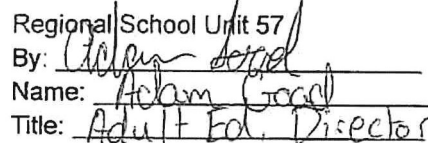 Regional School Unit 57
By: Adam
Name: Adam Goad
Title: Adult Ed. Director